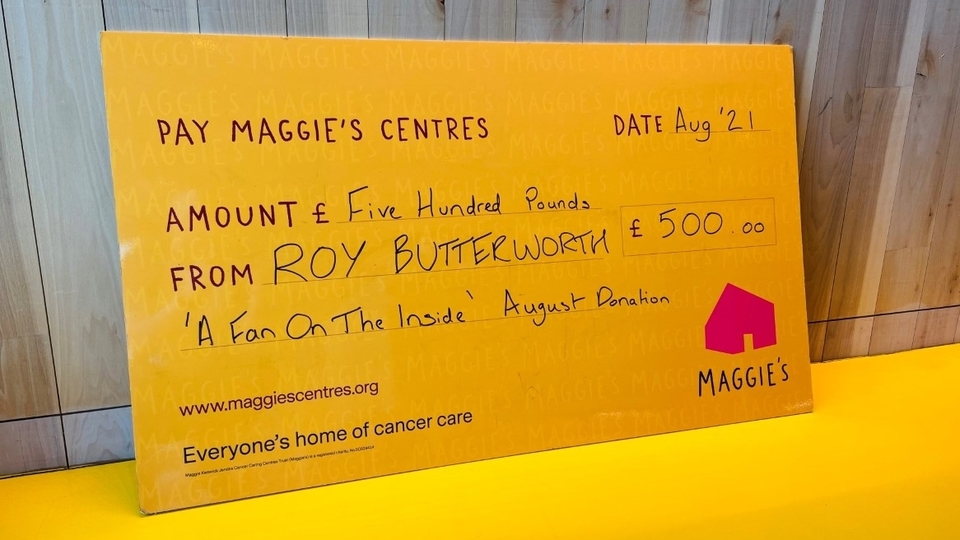 PAY MAGGIE'S CENTRES DATE Aug '21
AMOUNT £ Five Hundred Pounds
£ 500.00
FROM ROY BUTTERWORTH
'A Fan On The Inside' August Donation
MAGGIE'S
www.maggiescentres.org
Everyone's home of cancer care
Maggie Keswick Jencks Cancer Caring Centres Trust (Maggie's) is a registered charity, No.